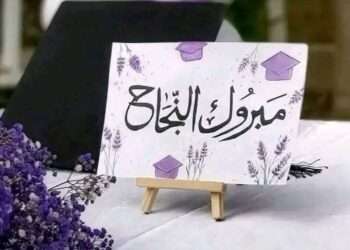 مبروك النّجاح